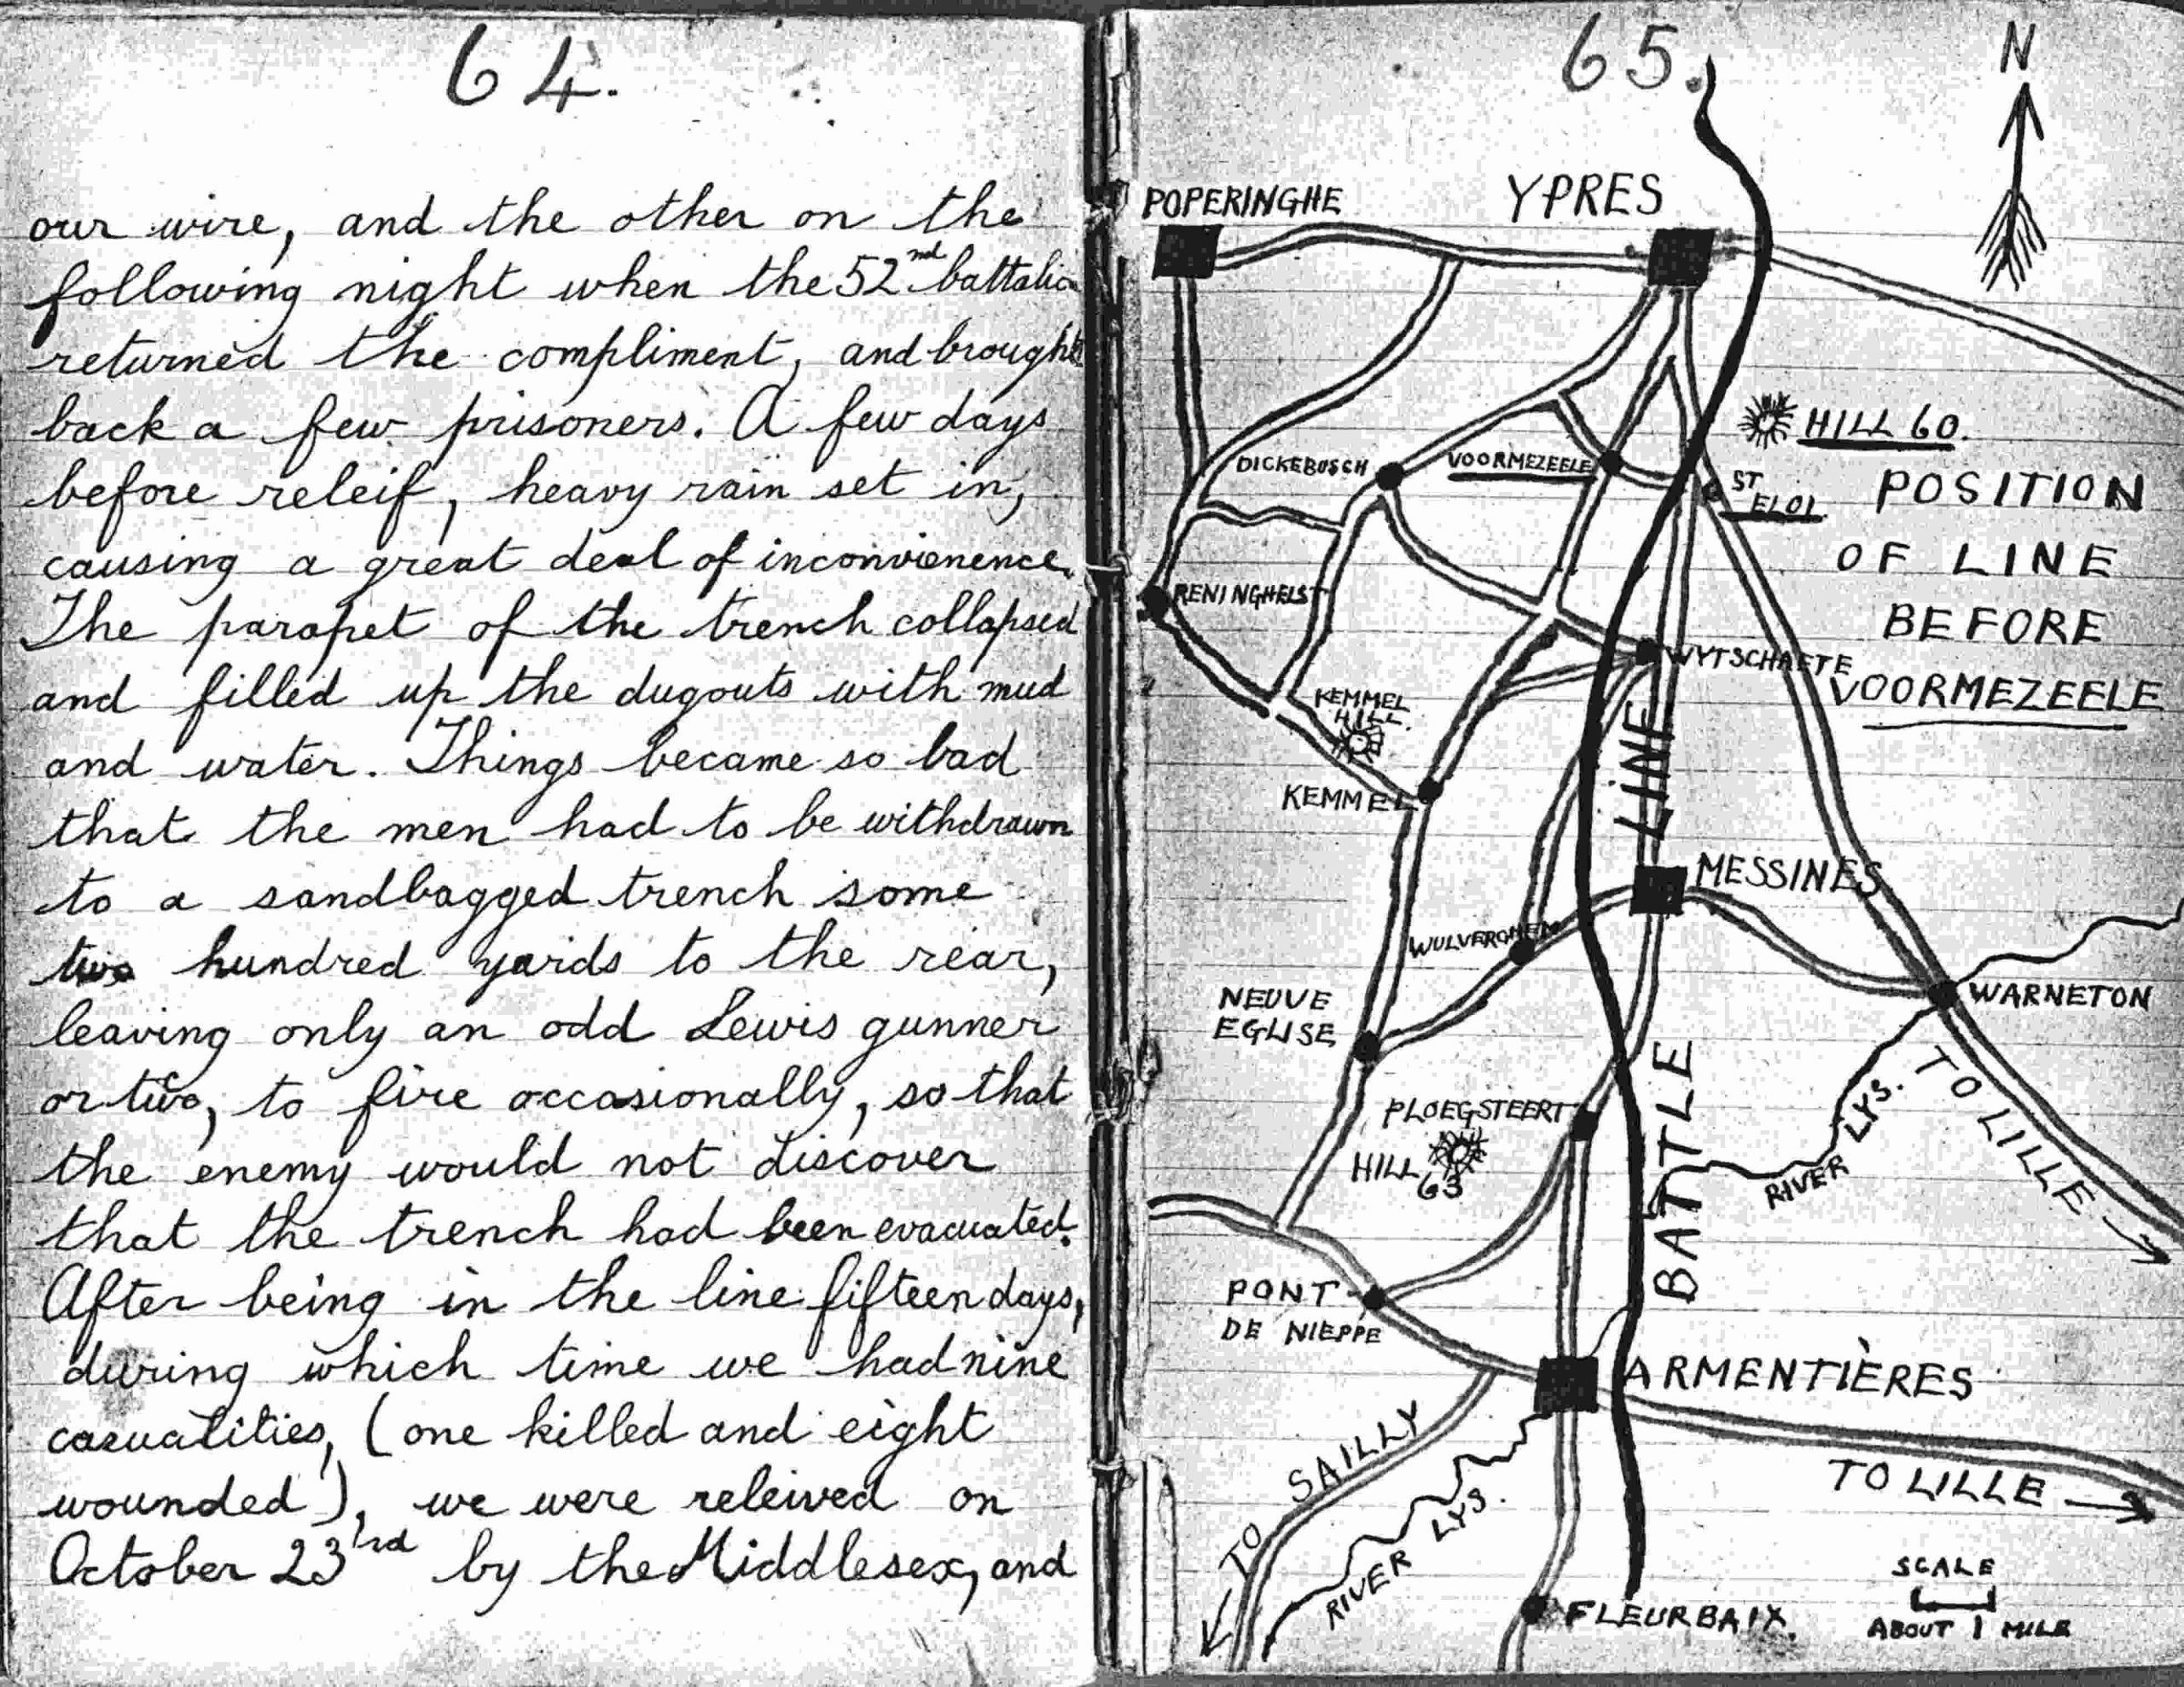 64.
our wire, and the other on the
following night when the 52nd battalion
returned the compliment, and brought
back a few prisoners. A few days
before releif, heavy rain set in,
causing a great deal of inconvienence.
The parapet of the trench collapsed
and filled up the dugouts with mud
and water. Things became so bad
that the men had to be withdrawn
to a sandbagged trench some
two hundred yards to the rear,
leaving only an odd Lewis gunner
or two, to fire occasionally, so that
the enemy would not discover
that the trench had been evacuated.
After being in the line fifteen days,
during which time we had nine
casualities, (one killed and eight
wounded), we were releived on
October 23rd by the Middlesex, and
65.
N
POPERINGHE
YPRES
HILL 60.
DICKEBUSCH
VOORMEZEELE
ST
ELOI.
POSITION
OF LINE
BEFORE
VOORMEZEELE
RENINGHELST
WYTSCHAETE
KEMMEL
HILL.
KEMMEL
BATTLE LINE
MESSINES
WULVERGHEM
NEUVE
EGLISE
WARNETON
PLOEGSTEERT
HILL
63
RIVER LYS.
TO LILLE
PONT
DE NIEPPE
ARMENTIÈRES
TO SAILLY
RIVER LYS.
TO LILLE
FLEURBAIX.
SCALE
ABOUT 1 MILE